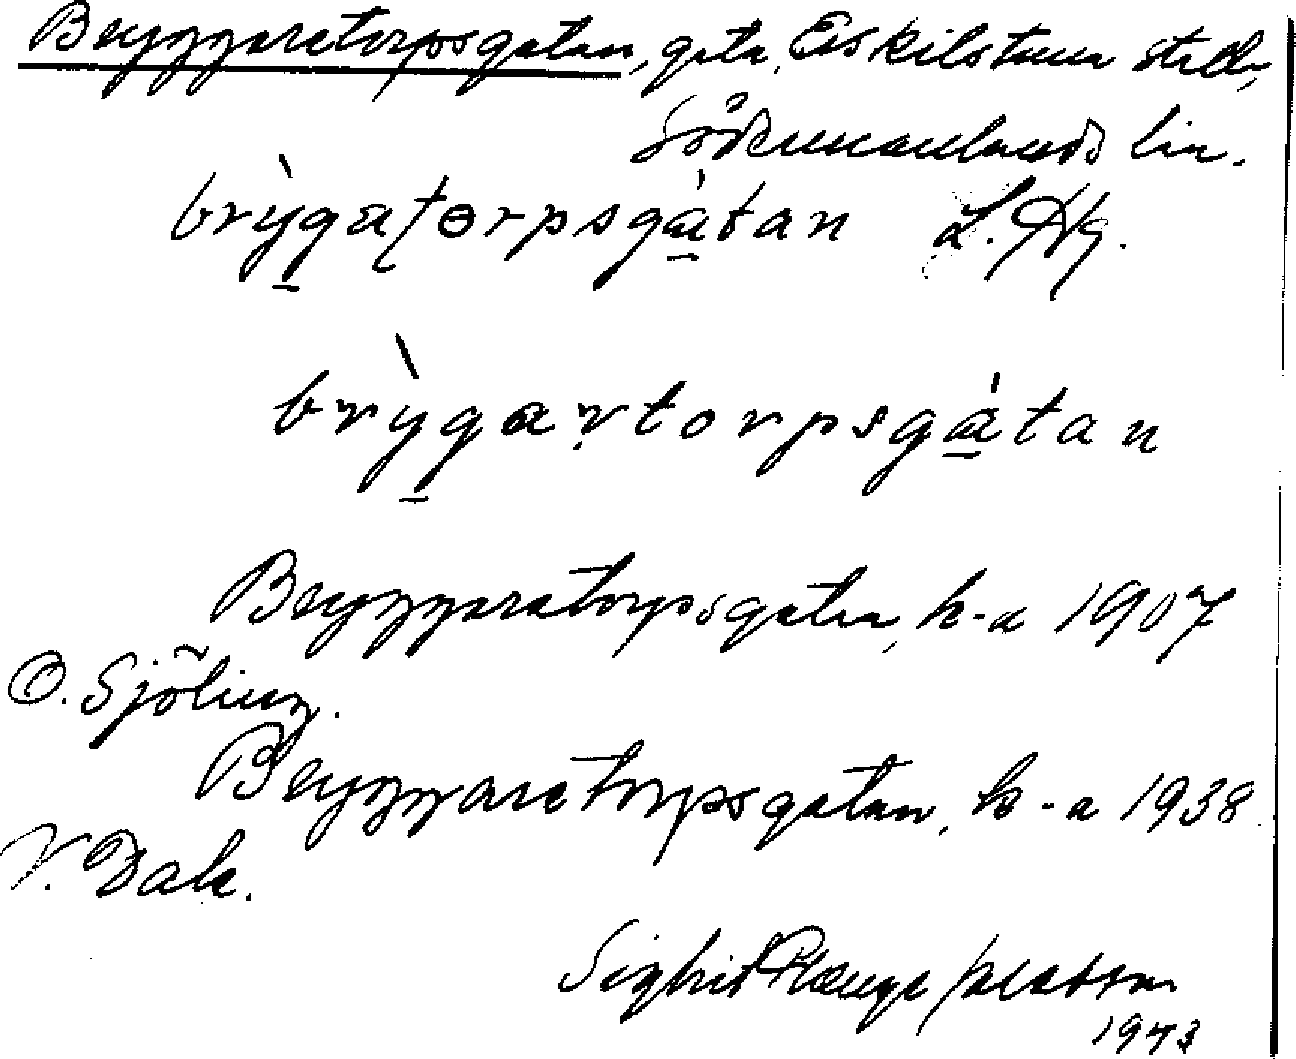 Bryggaretorpsgatan, gata, Eskilstuna stad,
Södermanlands län.
brỳgaʈɵrpsgàtan L. Hg.
brỳgartorpsgátan
Bryggaretorpsgatan, k-a 1907
O. Sjölin.
Bryggaretorpsgatan, k-a 1938
V. Dale.
Sigbrit Plænge Jacobson
1973